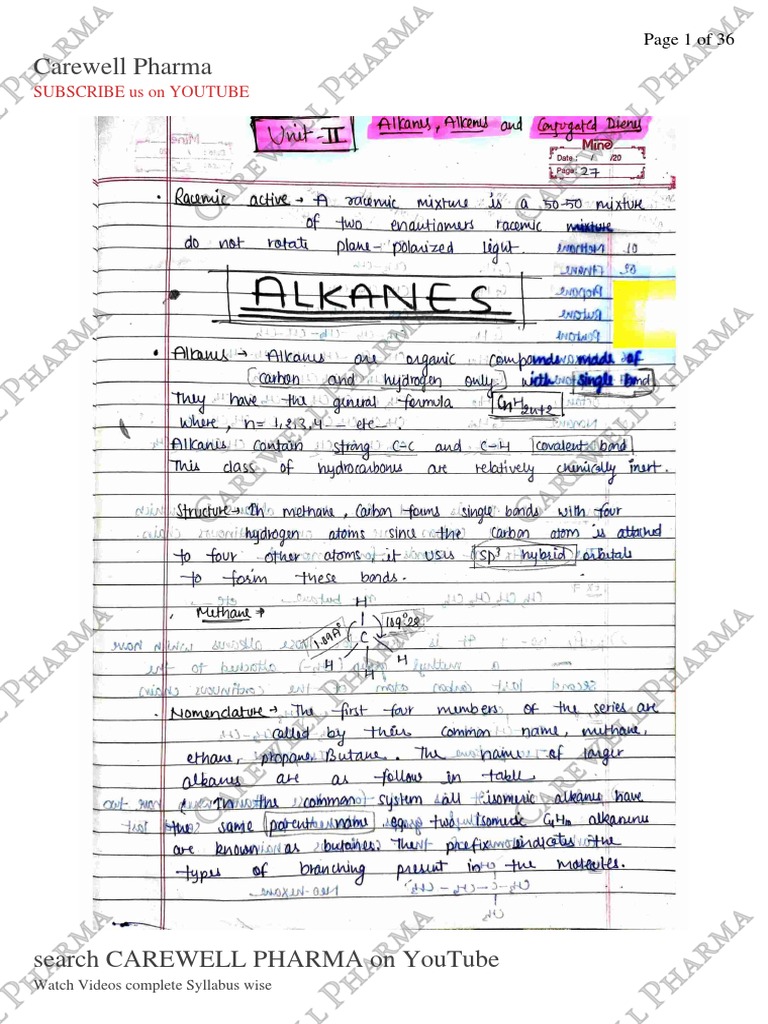 Page 1 of 36
Carewell Pharma
SUBSCRIBE us on YOUTUBE
Unit-II Alkanes, Alkenes and Conjugated Dienes
Mine
Date: / /20
Page: 27
• Racemic active → A racemic mixture is a 50-50 mixture
of two enautiomers racemic mixture
do not rotate plane-polarized light.
ALKANES
• Alkanes → Alkanes are organic compounds made of
carbon and hydrogen only with single bond
They have the general formula CnH2n+2
where, n= 1,2,3,4 - etc
Alkanes contain strong C-C and C-H covalent bond
This class of hydrocarbons are relatively chemically inert.
Structure → In methane, Carbon forms single bonds with four
hydrogen atoms since the carbon atom is attached
to four other atoms, it uses sp3 hybrid orbitals
to form these bonds.
Methane →
H
109°28
C
H H
H
• Nomenclature → The first four members of the series are
called by their common name, methane,
ethane, propane Butane. The name of larger
alkanes are as follow in table
In the common system all isomeric alkanes have
the same parent name two
are known as The prefix indicates the
types of branching present in the molecules.
search CAREWELL PHARMA on YouTube
Watch Videos complete Syllabus wise
CAREWELL PHARMA